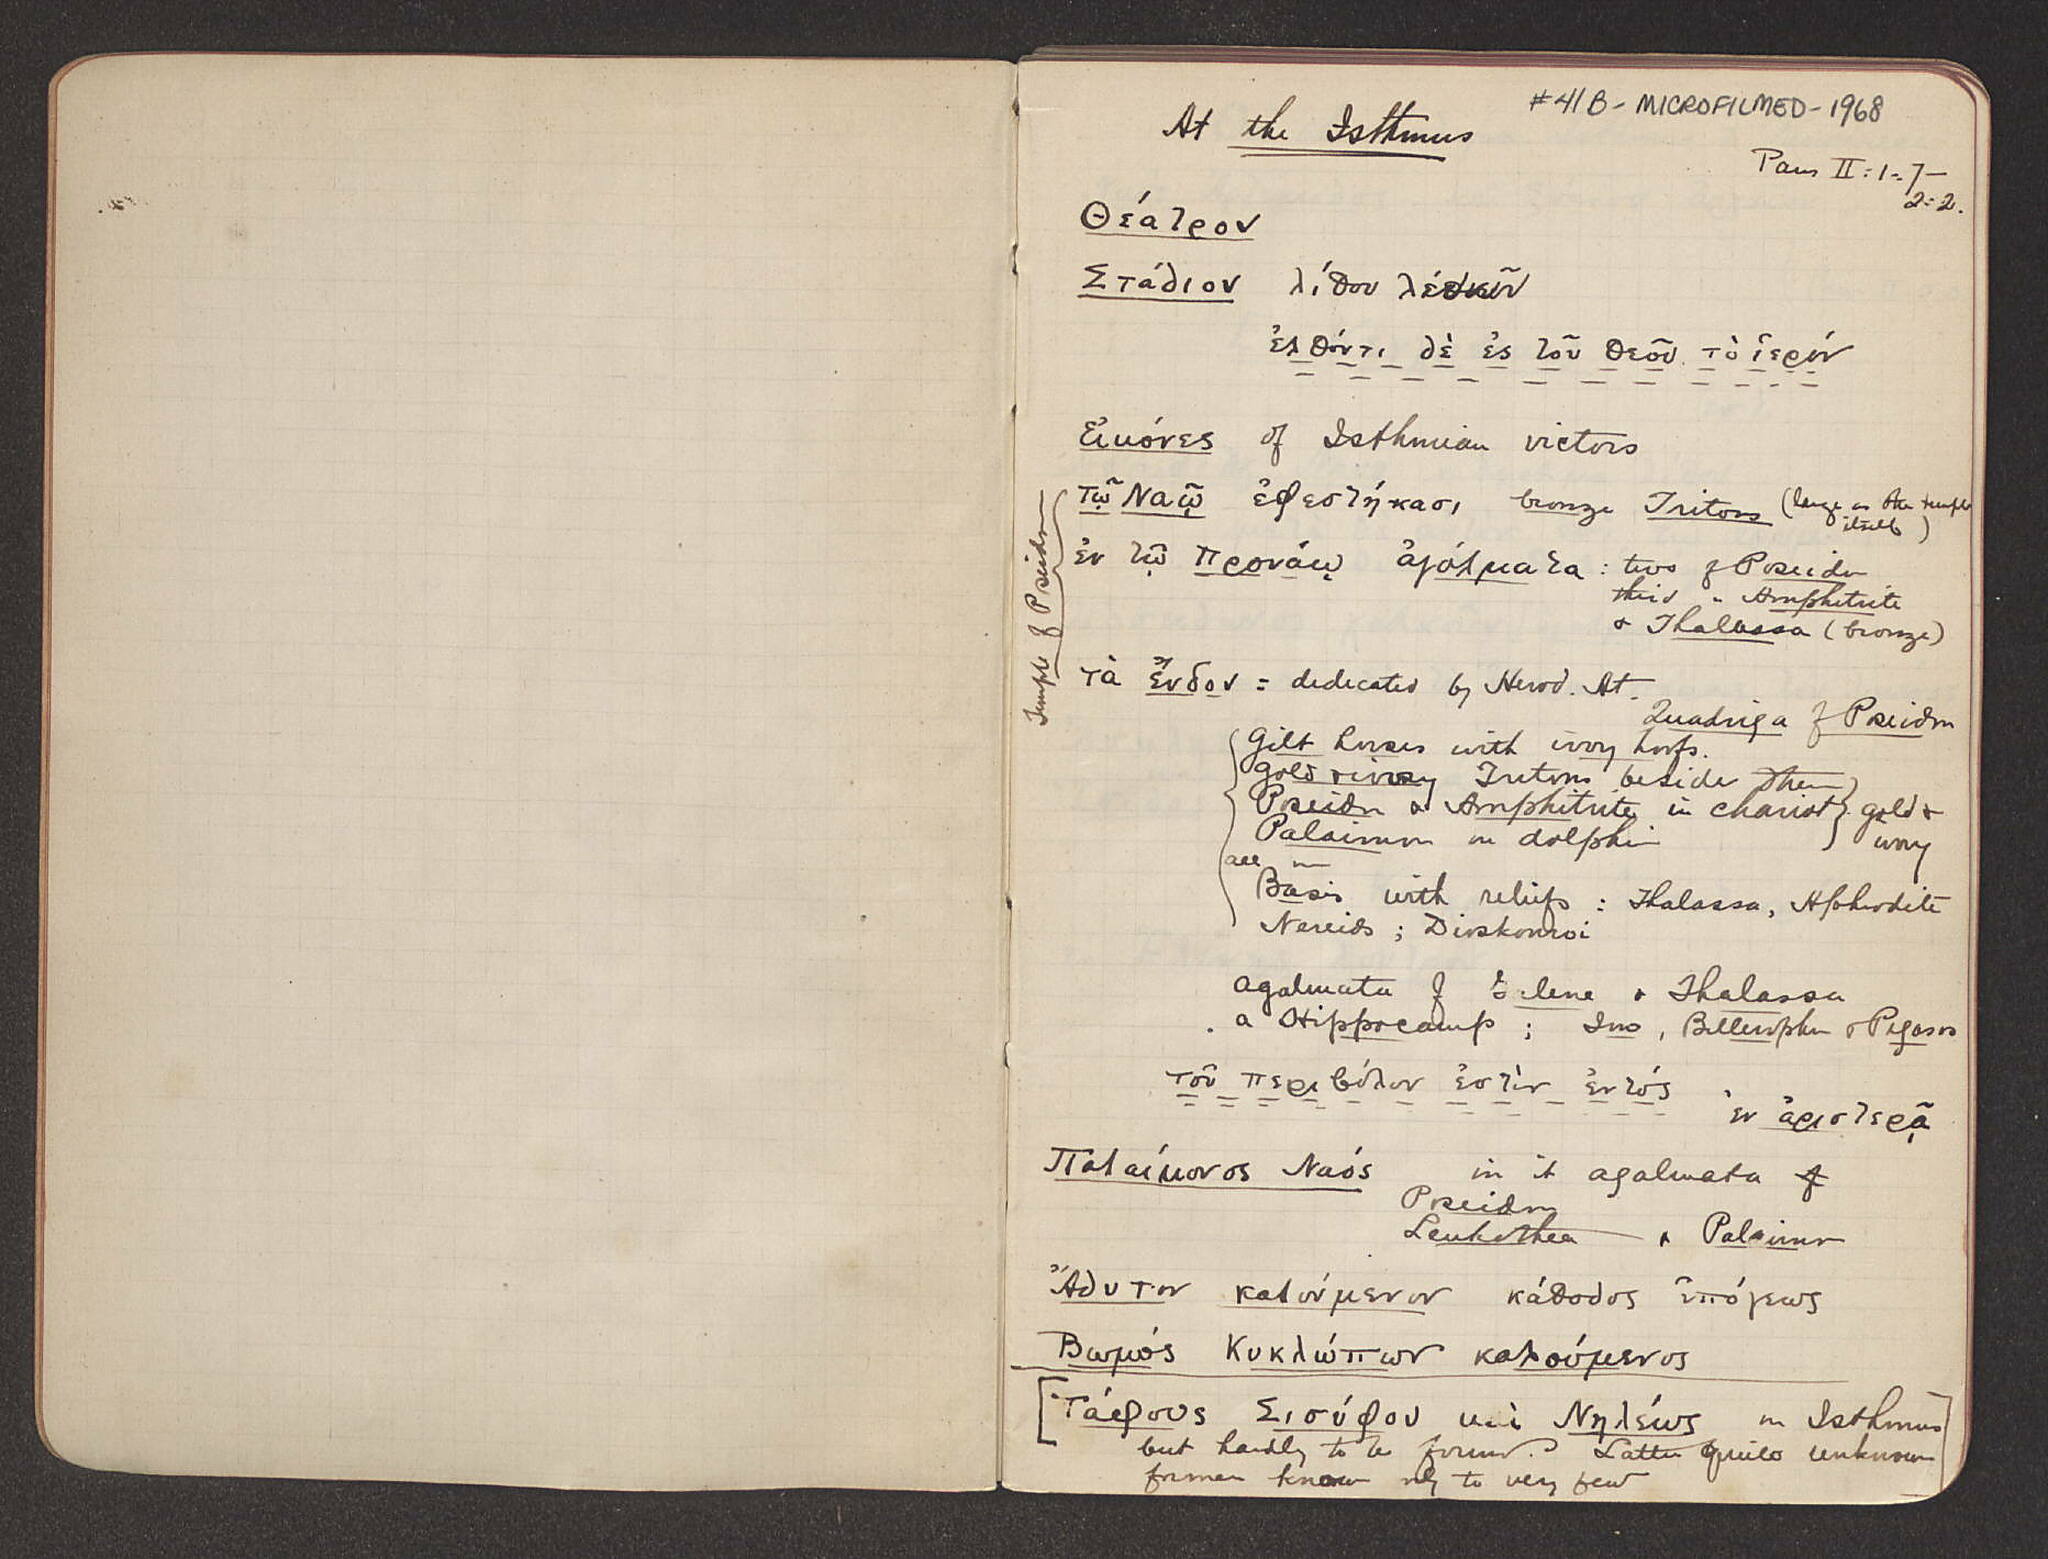 #41B - MICROFILMED - 1968
At the Isthmus
Paus II:1-7-
2:2.
Θέατρον
Στάδιον λίθου λευκοῦ
ἐλθόντι δὲ ἐς τοῦ θεοῦ τὸ ἱερόν
Εἰκόνες of Isthmian victors
τῷ Ναῷ ἐφεστήκασι bronze Tritons (large as the temple
itself)
Temple of Poseidon
ἐν τῷ προνάῳ ἀγάλματα: two of Poseidon
third " Amphitrite
& Thalassa (bronze)
τὰ ἔνδον = dedicated by Herod. At.
Quadriga of Poseidon
Gilt horses with ivory hoofs.
gold & ivory Tritons beside them
Poseidon & Amphitrite in chariot } gold &
Palaimon on dolphin ivory
all on
Basis with reliefs: Thalassa, Aphrodite
Nereids; Dioskouroi
agalmata of Galene & Thalassa
. a Hippocamp; Ino, Bellerophon & Pegasos
τοῦ περιβόλου ἐστὶν ἐντός
ἐν ἀριστερᾷ
Παλαίμονος Ναός in it agalmata of
Poseidon
Leukothea & Palaimon
Ἄδυτον καλούμενον κάθοδος ὑπόγεως
Βωμός Κυκλώπων καλούμενος
[Τάφους Σισύφου καὶ Νηλέως on Isthmus
but hardly to be found. Latter quite unknown
former known only to very few]